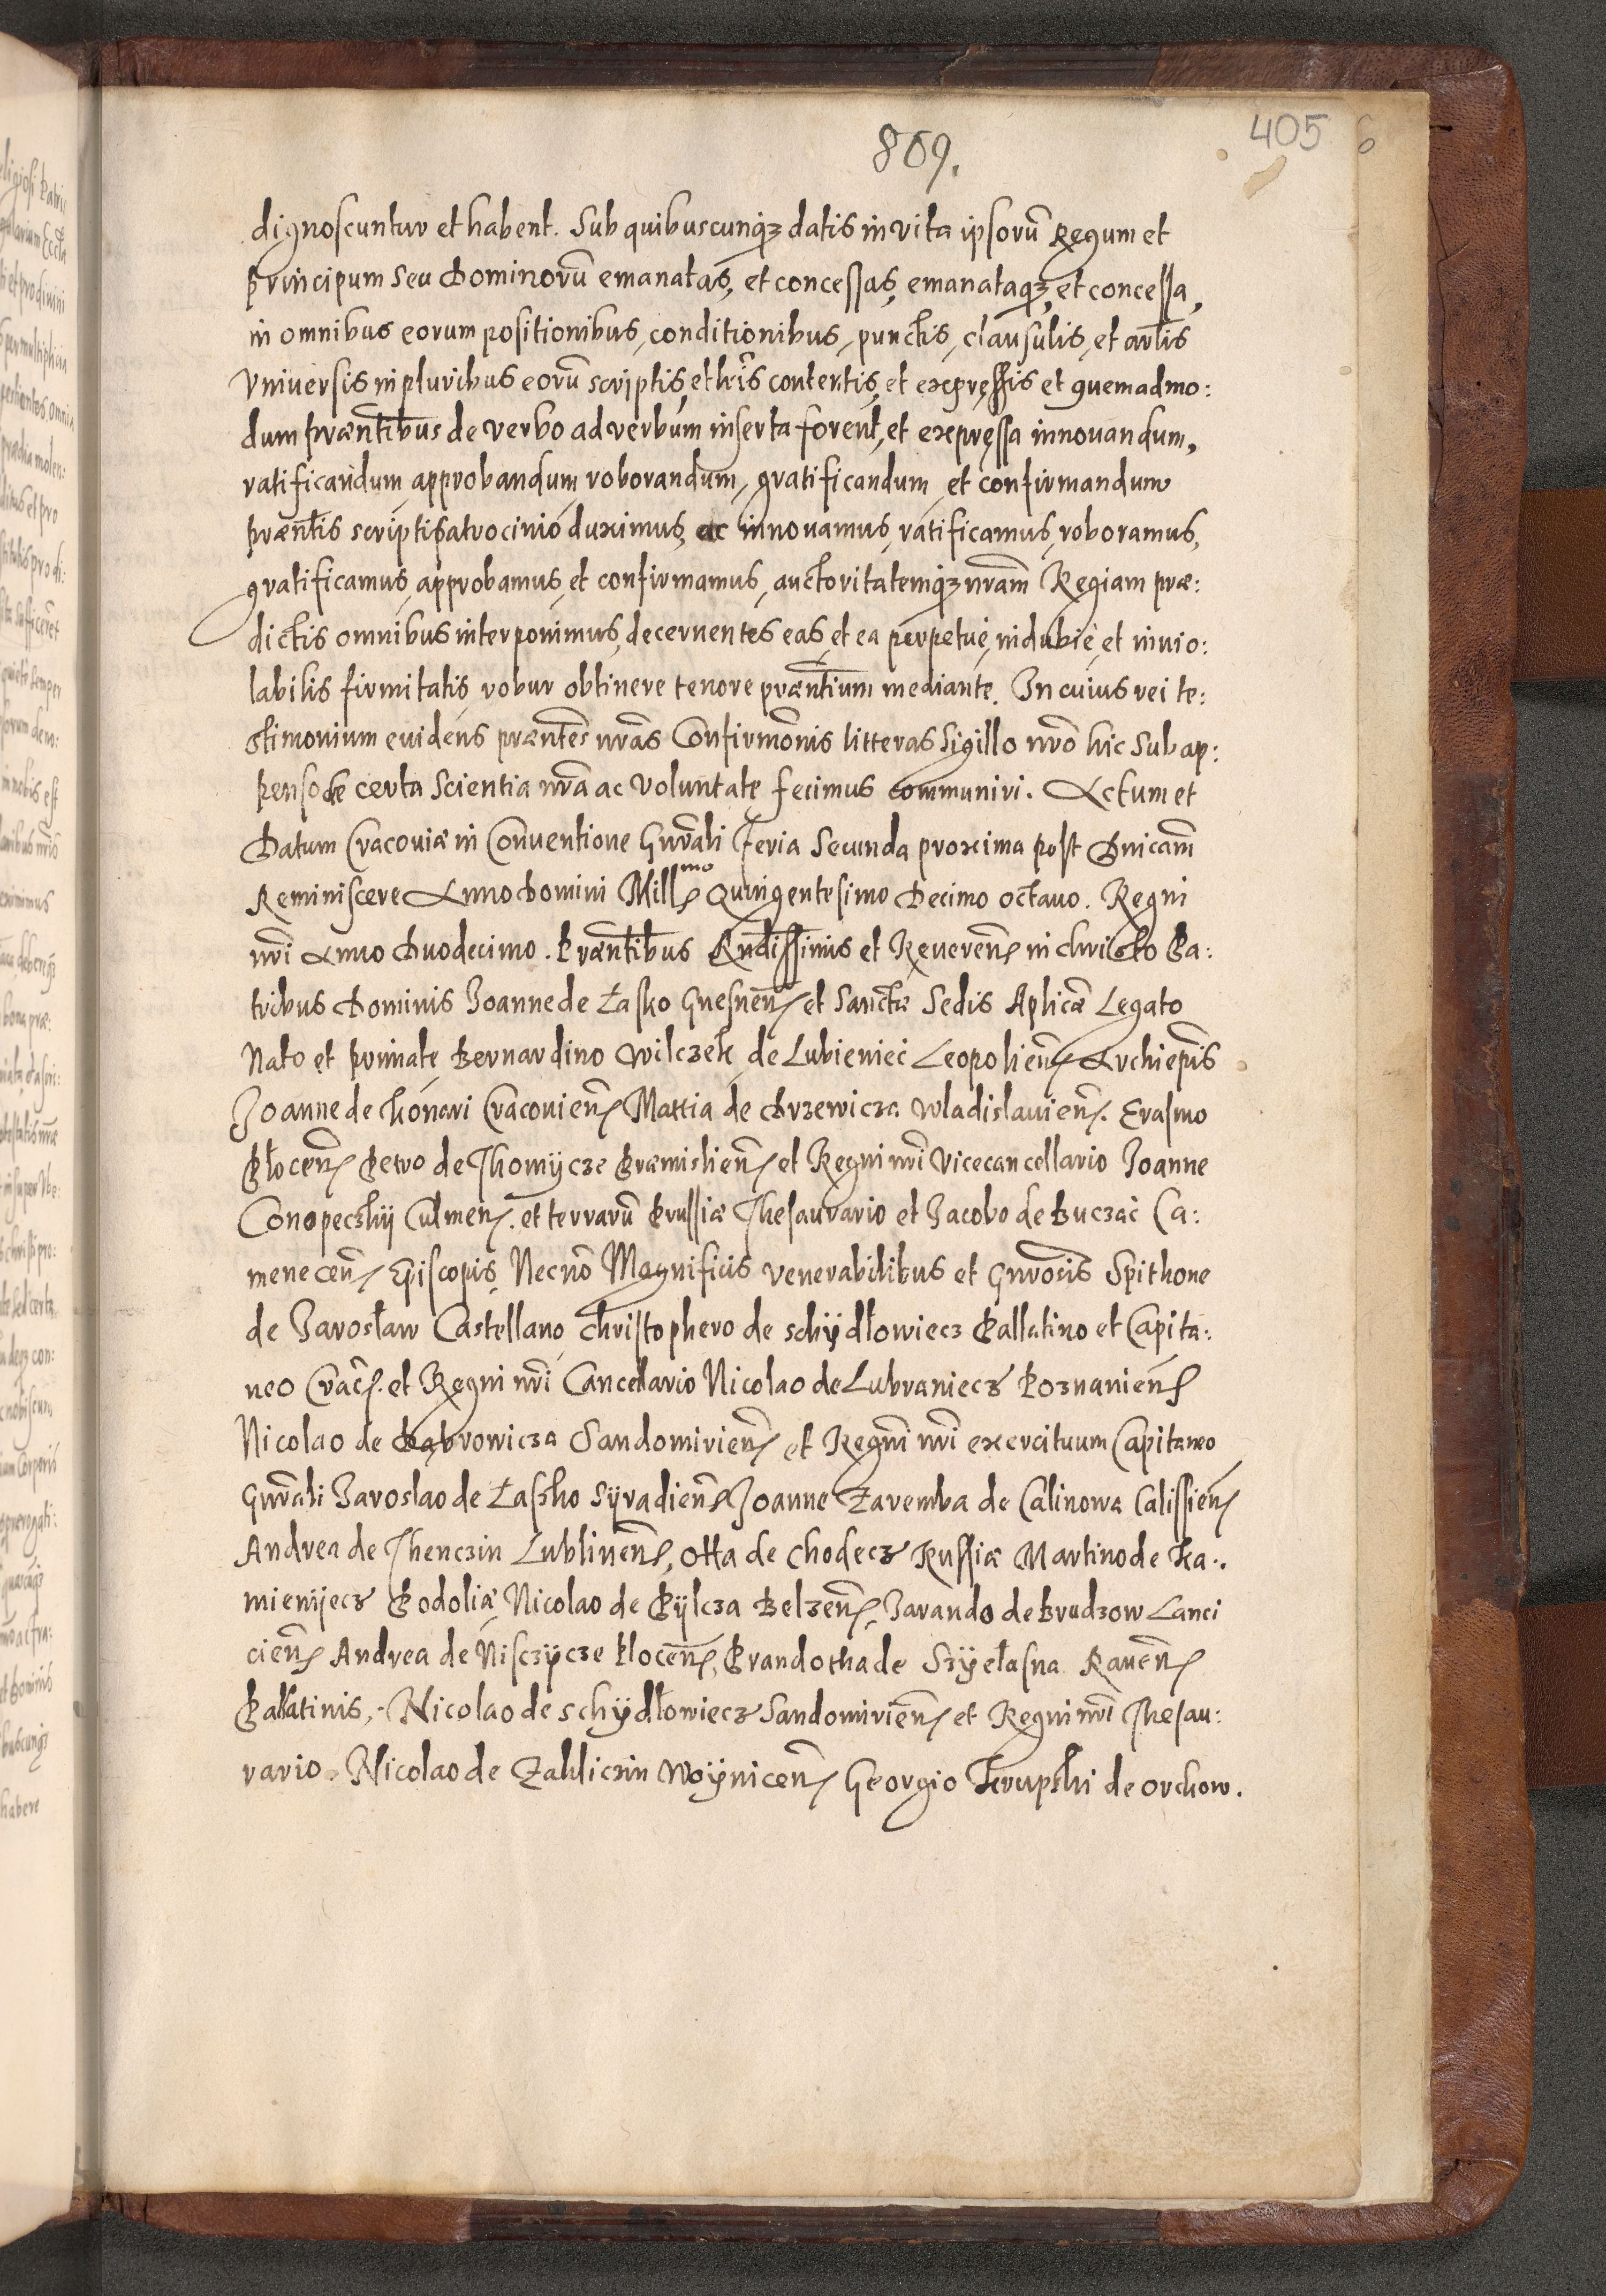 809.
405
6
dignoscuntur et habent. Sub quibuscunq3 datis in vita ipsorū Regum et
principum seu Dominorū emanatas, et concessas, emanataq3, et concessa,
in omnibus eorum positionibus, conditionibus, punctis, clausulis, et artl̃is
Vniversis in pluribus eorū scriptis, et lr̃is contentis, et expręssis et quemadmo:
dum præñtibus de verbo ad verbum inserta forent, et expręssa innouandum,
ratificandum, approbandum, roborandum, gratificandum, et confirmandum
præñtis scripti patrocinio duximus, ac innouamus, ratificamus, roboramus,
gratificamus, approbamus, et confirmamus, auctoritatemq3 nr̃am Regiam præ:
dictis omnibus interponimus, decernentes eas, et ea perpetuè, indubiè, et inuio:
labilis firmitatis, robur obtinere tenore præñtium mediante. In cuius rei te:
stimonium euidens præñtes nr̃as Confirmõnis litteras Sigillo nr̃o hic Subap:
penso de certa Scientia nr̃a ac Voluntate fecimus communiri. Actum et
Datum Cracouiæ in Conuentione Gnr̃ali Feria Secunda proxima post Dnicam̃
Reminiscere Anno Domini Mill̃mo Quingentesimo Decimo octauo. Regni
nr̃i Anno Duodecimo. Præñtibus Rndissimis et Reuereñ in Christo Pa:
tribus Dominis Joanne de Łasko Gnesneñ et Sanctæ Sedis Aplicæ Legato
Nato et primate, Bernardino Wilczek de Lubieniei Leopolieñ Archiep̃is
Joanne de Konari Cracouieñ Mattia de Drzewicza Wladislauieñ. Erasmo
Płoceñ Petro de Thomÿcze Præmislieñ et Regni nr̃i Vicecancellario Joanne
Conopeczkij Culmeñ. et terrarū Prussiæ Thesaurario et Jacobo de Buczac Ca:
meneceñ Ep̃iscopis, Necnō Magnificis venerabilibus et Gnr̃osis Spithone
de Jarosław Castellano, Christophero de schÿdłowiecz Pallatino et Capita:
neo Crac̃. et Regni nr̃i Cancellario Nicolao de Lubraniecz Poznanieñ
Nicolao de Dąbrowicza Sandomirieñ et Regni nr̃i exercituum Capitaneo
Gnr̃ali Jaroslao de Łassko Sÿradieñ Joanne Zaremba de Calinowa Calissieñ
Andrea de Thenczin Lublineñ, Otta de Chodecz Russiæ Martino de Ka:
mienÿecz Podoliæ, Nicolao de Pÿlcza Belzeñ, Jarando de Brudzow Lanci
cieñ Andrea de Nisczÿcze Ploceñ, Prandotha de Szÿełasna Raueñ
Pallatinis, Nicolao de schÿdłowiecz Sandomirieñ et Regni nr̃i Thesau:
rario. Nicolao de Zakliczin Woÿniceñ Georgio Krupski de Orchow.